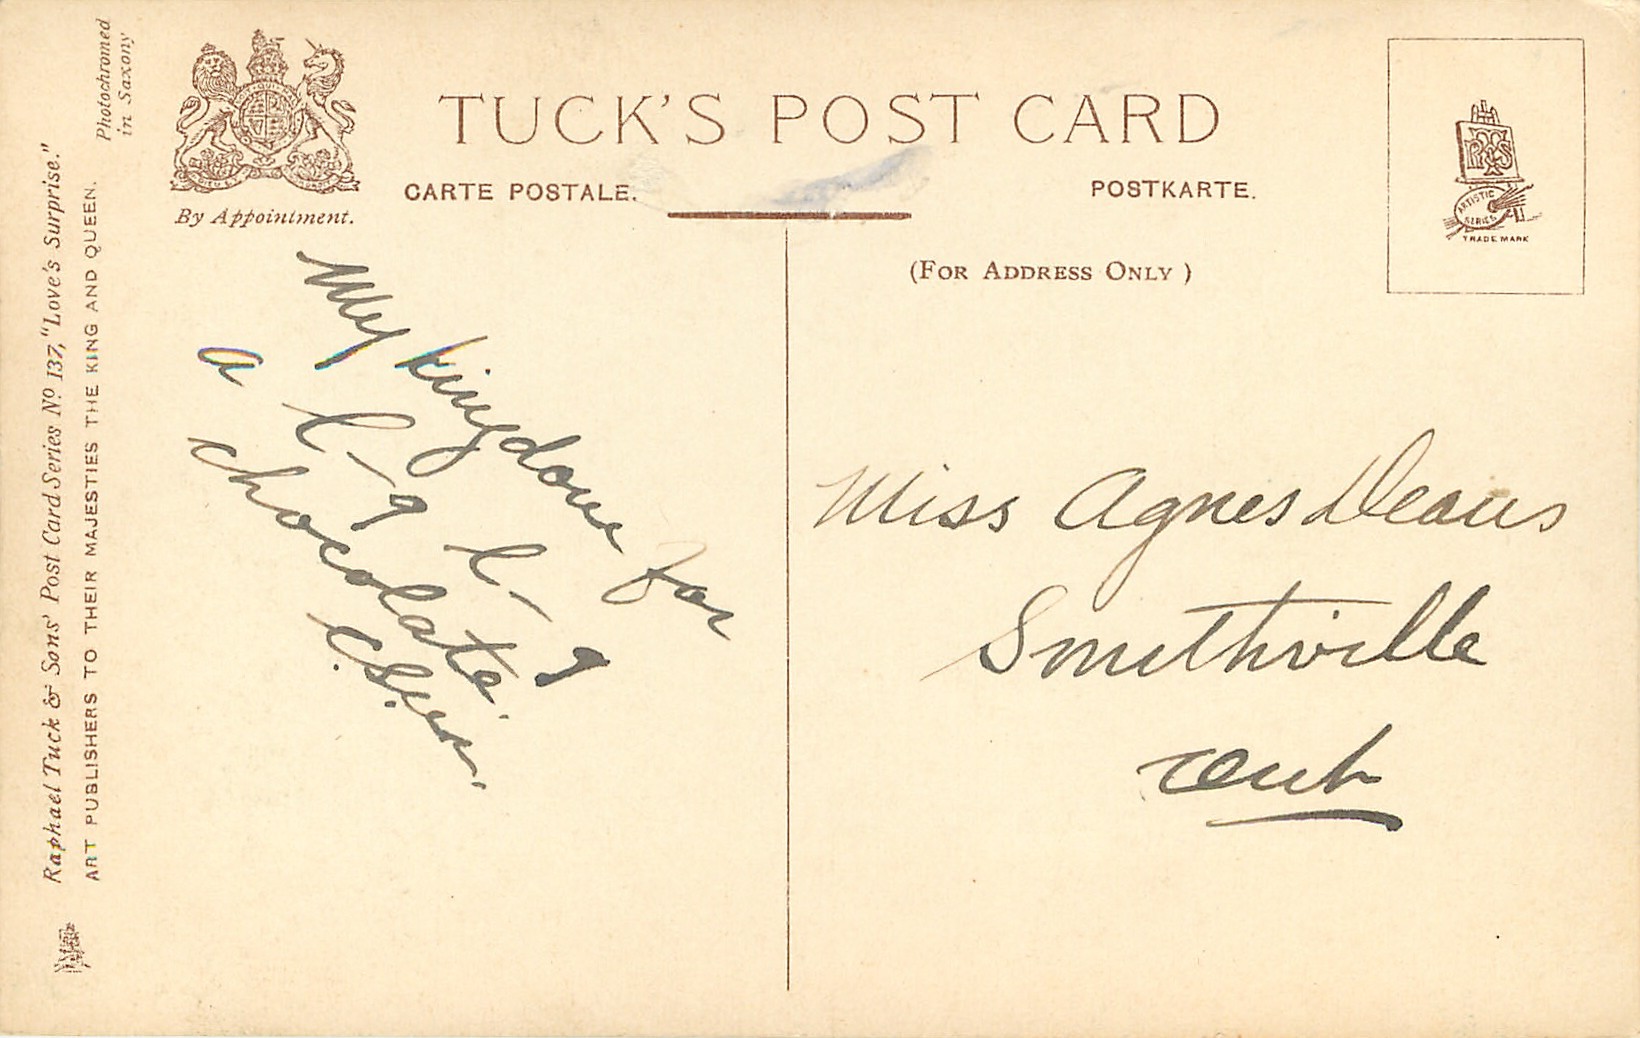 Photochromed
in Saxony
Raphael Tuck & Sons' Post Card Series Nº 137, "Love's Surprise."
ART PUBLISHERS TO THEIR MAJESTIES THE KING AND QUEEN.
By Appointment.
TUCK'S POST CARD
CARTE POSTALE.
POSTKARTE.
(FOR ADDRESS ONLY)
ARTISTIC
SERIES
TRADE MARK
My kingdom for
a l-g l-g
chocolate.
Miss Agnes Deans
Smithville
Ont